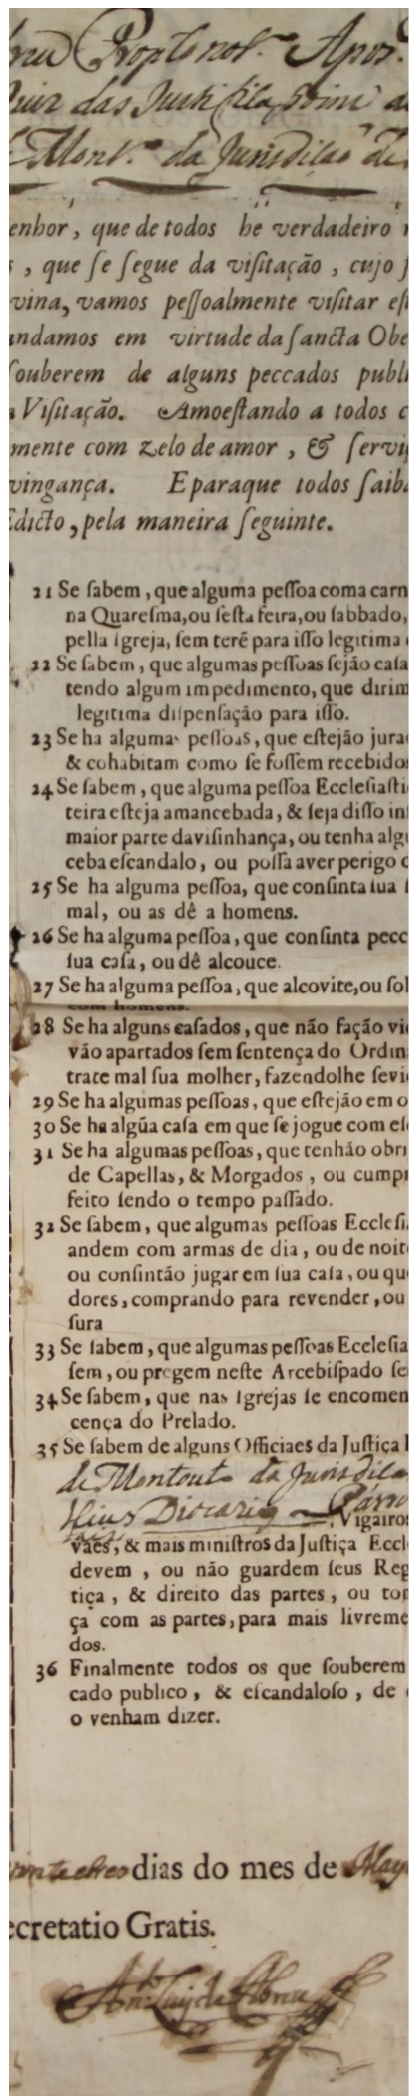 Proptonot.º Apos.
das Justif
de Mont.º da Jurisdilaõ de
enhor, que de todos he verdadeiro
, que ſe ſegue da viſitação, cujo
vina, vamos peſſoalmente viſitar eſ
andamos em virtude da ſancta Obe
ſouberem de alguns peccados publ
a Viſitação. Amoeſtando a todos c
mente com zelo de amor, & ſervi
vingança. E paraque todos ſaib
Edicto, pela maneira ſeguinte.
21 Se ſabem, que alguma peſſoa coma carn
na Quareſma, ou ſeſta feira, ou ſabbado,
pella Igreja, ſem terẽ para iſſo legitima
22 Se ſabem, que algumas peſſoas ſejão caſa
tendo algum impedimento, que dirim
legitima diſpenſação para iſſo.
23 Se ha algumas peſſoas, que eſtejão jura
& cohabitam como ſe foſſem recebido
24 Se ſabem, que alguma peſſoa Eccleſiaſti
teira eſteja amancebada, & ſeja diſſo in
maior parte daviſinhança, ou tenha alg
ceba eſcandalo, ou poſſa aver perigo
25 Se ha alguma peſſoa, que conſinta ſua
mal, ou as dê a homens.
26 Se ha alguma peſſoa, que conſinta pecc
ſua caſa, ou dê alcouce.
27 Se ha alguma peſſoa, que alcovite, ou ſol
com homens.
28 Se ha alguns caſados, que não fação vi
vão apartados ſem ſentença do Ordin
trate mal ſua molher, fazendolhe ſevi
29 Se ha algumas peſſoas, que eſtejão em o
30 Se ha algũa caſa em que ſe jogue com eſ
31 Se ha algumas peſſoas, que tenhão obri
de Capellas, & Morgados, ou cump
feito ſendo o tempo paſſado.
32 Se ſabem, que algumas peſſoas Eccleſi
andem com armas de dia, ou de noit
ou conſintão jugar em ſua caſa, ou qu
dores, comprando para revender, ou
ſura
33 Se ſabem, que algumas peſſoas Eccleſia
ſem, ou pregem neſte Arcebiſpado ſe
34 Se ſabem, que nas Igrejas ſe encomen
cença do Prelado.
35 Se ſabem de alguns Officiaes da Juſtiça
de Montouto da Jurisdila
Diocari Párro
, Vigairos
vães, & mais miniſtros da Juſtiça Eccl
devem, ou não guardem ſeus Reg
tiça, & direito das partes, ou to
ça com as partes, para mais livreme
dos.
36 Finalmente todos os que ſouberem
cado publico, & eſcandaloſo, de
o venham dizer.
dias do mes de May
ecretatio Gratis.
An.to Luiz de Abreu